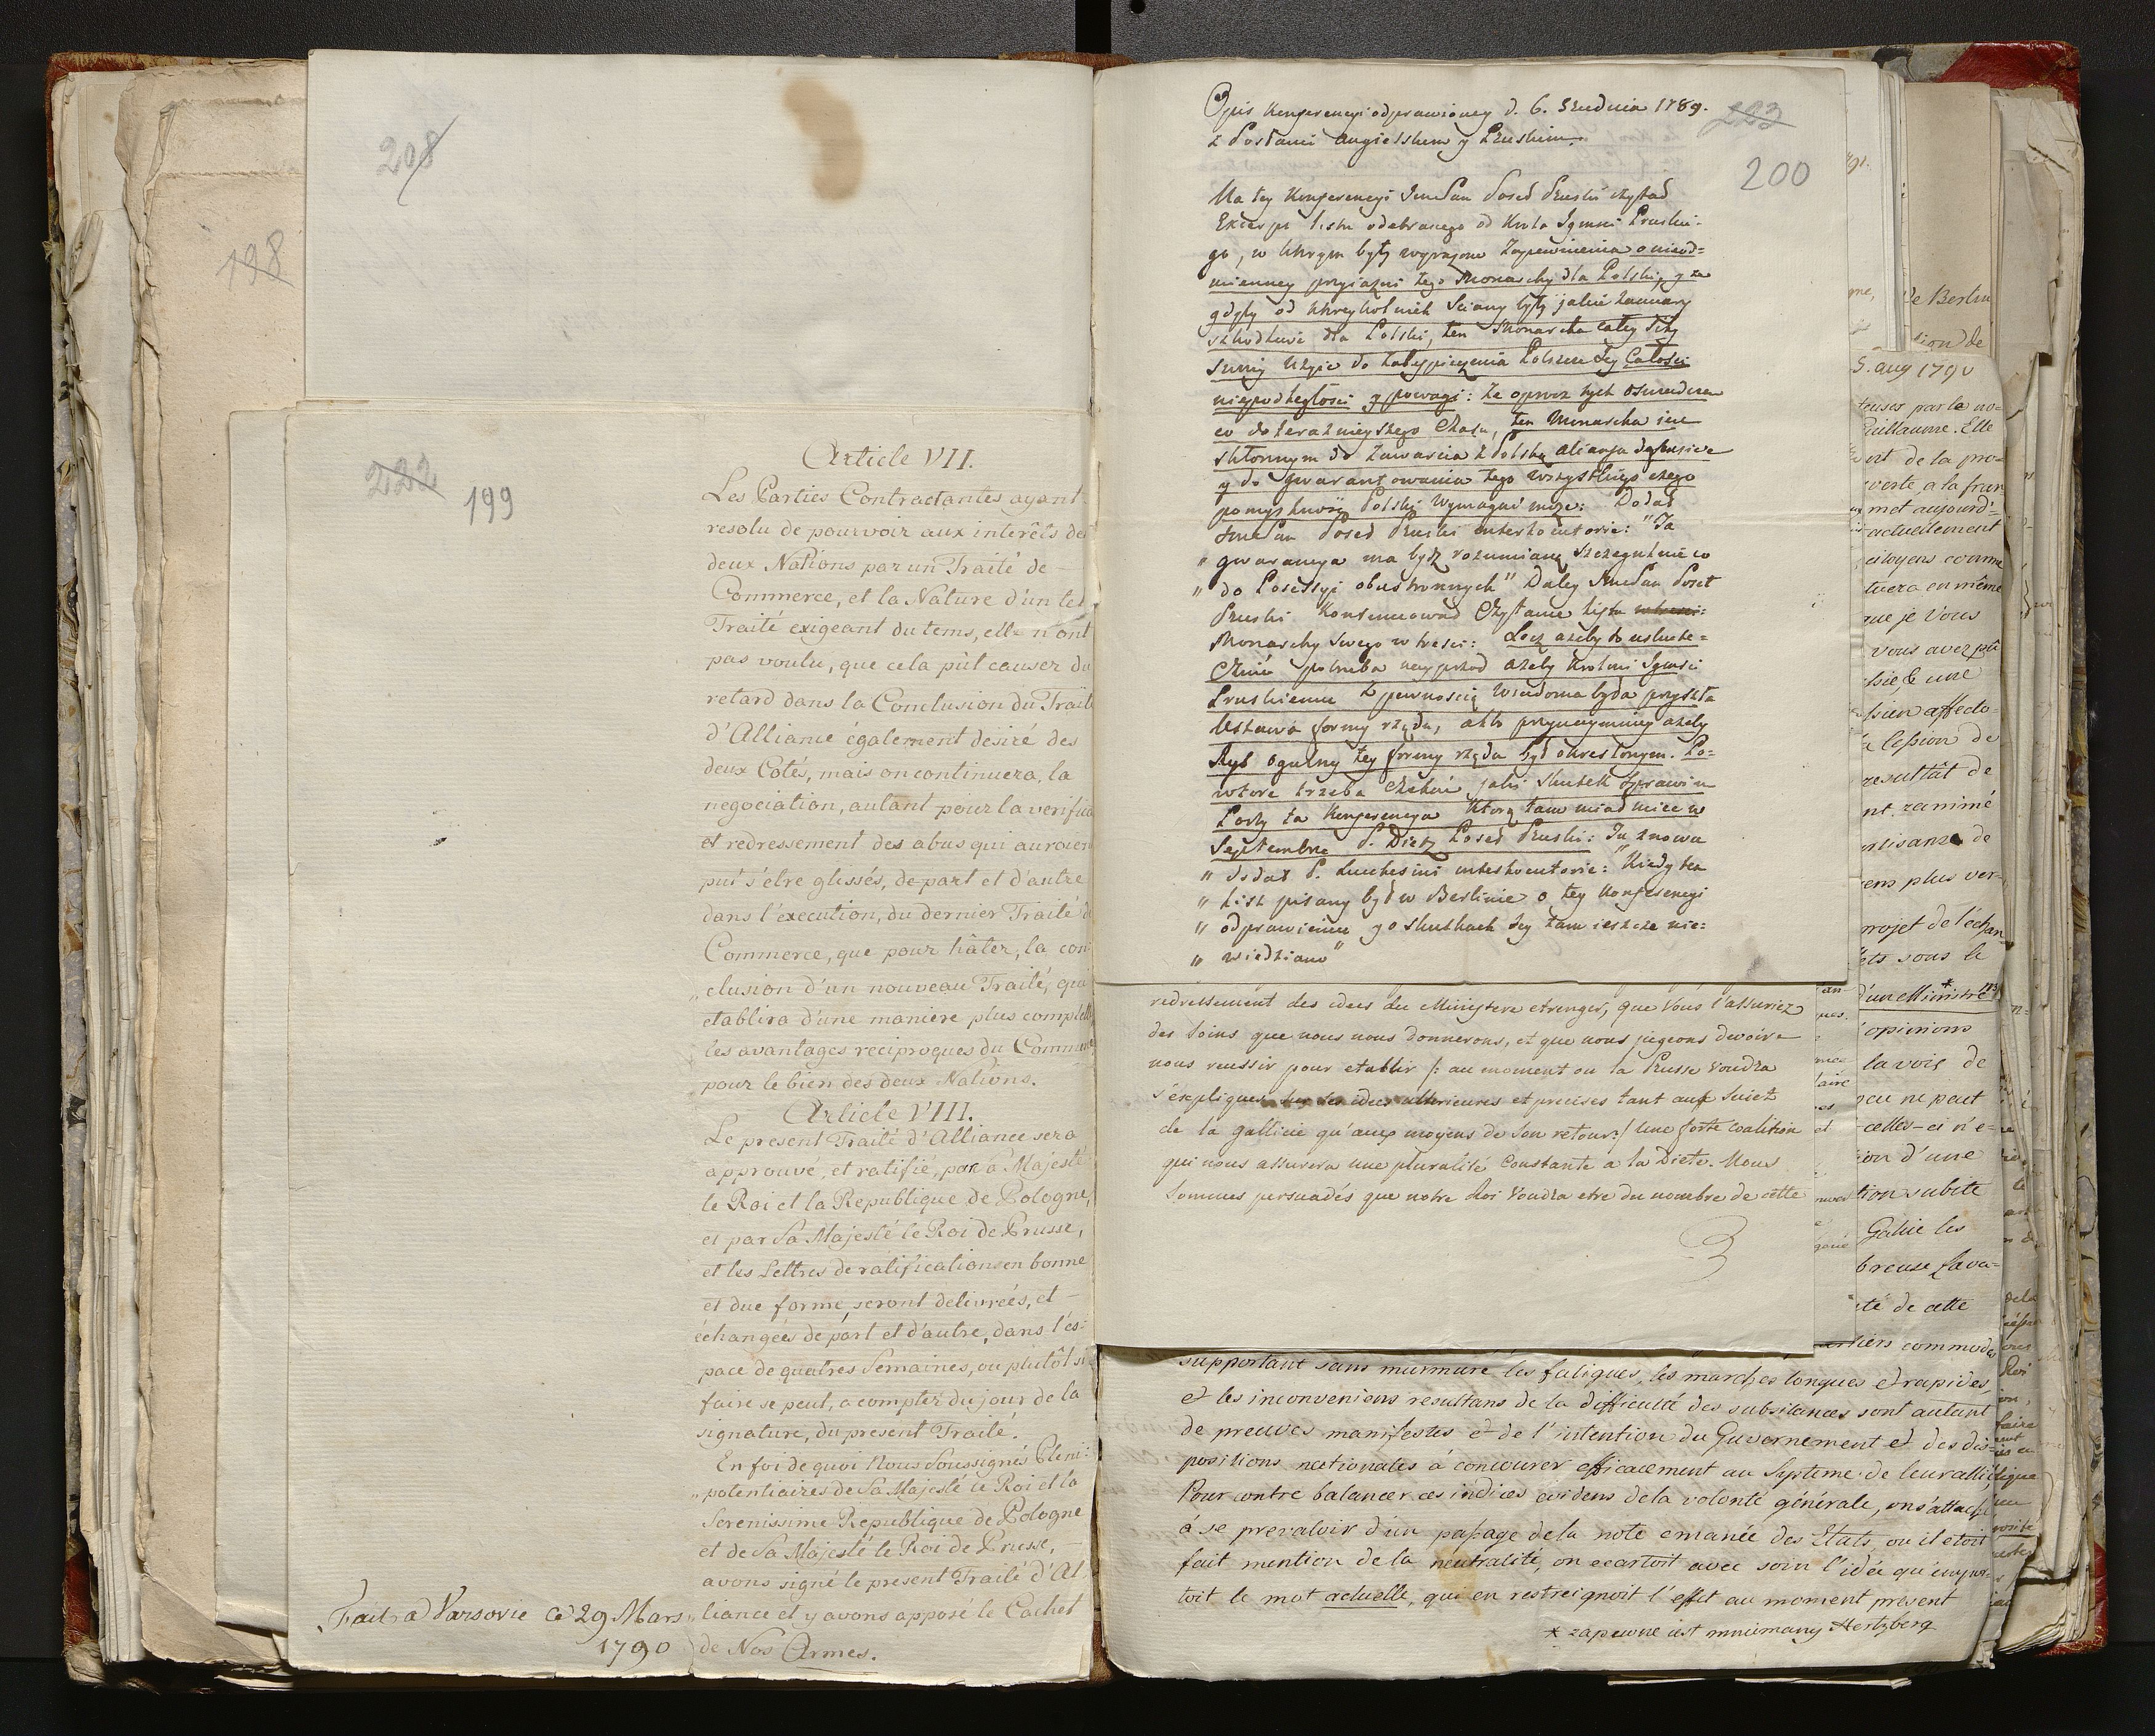 208
198
222
199
Article VII.
Les Parties Contractantes ayant
resolu de pourvoir aux interêts des
deux Nations par un Traité de
Commerce, et la Nature d'un tel
Traité exigeant du tems, elles n'ont
pas voulu, que cela pût causer du
retard dans la Conclusion du Traité
d'Alliance également desiré des
deux Cotés, mais on continuera, la
negociation, autant pour la verifica
et redressement des abus qui auroien
pus s'etre glissés, de part et d'autre
dans l'execution, du dernier Traité de
Commerce, que pour hâter, la con
„clusion d'un nouveau Traité, qui
etablira d'une maniere plus complette
les avantages reciproques du Commerce
pour le bien des deux Nations.
Article VIII.
Le present Traité d'Alliance sera
approuvé, et ratifié, par Sa Majesté
le Roi et la Republique de Pologne,
et par Sa Majesté le Roi de Prusse,
et les Lettres de ratifications en bonne
et due forme, seront delivrées, et
échangées de part et d'autre, dans l'es-
pace de quatres Semaines, ou plutôt si
faire se peut, a compter du jour de la
signature, du present Traité.
En foi de quoi Nous Soussignés Pleni-
„potentiaires de Sa Majesté le Roi et la
Serenissime Republique de Pologne
et de Sa Majesté le Roi de Prusse,
avons signé le present Traité d'Al
liance et y avons apposé le Cachet
de Nos Armes.
Fait à Varsovie ce 29 Mars
1790
Opis Konferencyi odprawioney d. 6. Grudnia 1789.
z Posłami Angielskim y Pruskim.
223
200
Na tey Konferencyi JmcPan Poseł Pruski czytał
Excerpt listu odebranego od Krola Jgmsci Pruskie-
go, w ktorym były wyrażone zapewnienia o nieod=
mienney przyiaźni tego Monarchy dla Polski, y że
gdyby od ktoreykolwiek sciany były jakie zamiary
szkodliwe dla Polski, ten Monarcha całey siły
swoiey użyie do zabespieczenia Polszcze Jey Całości
niepodległości y powagi: że oprocz tych oswiadczen
co do teraźnieyszego Czasu, ten Monarcha iest
skłonnym do zawarcia z Polską aliansu defensive
y do gwarantowania tego wszystkiego czego
pomyslność Polski wymagać może: Dodał
JmcPan Poseł Pruski interlocutorie: "Ta
„ gwarancya ma bydź rozumianą szczegulnie co
„ do Possessyi obustronnych" Daley JmcPan Poseł
Pruski kontynuował Czytanie listu
Monarchy swego w tresci: Lecz ażeby to uskute=
cznić potrzeba nayprzod ażeby Krolowi Jgmsci
Pruskiemu z pewnością wiadoma była przyszła
Ustawa formy rządu, albo przynaymniey ażeby
Rys ogulny tey formy rządu był okreslonym. Po=
wtore trzeba czekać jaki skutek sprawi w
Porty ta Konferencya ktorą tam miał miec w
Septembrze P. Dietz Poseł Pruski: Tu znowu
„ dodał P. Luchesini interlocutorie: "Kiedy ten
„ List pisany był w Berlinie o tey Konferencyi
„ odprawieniu y o skutkach Jey tam ieszcze nie=
„ wiedziano"
redressement des idees du Ministere etranger, que Vous l'assuriez
des soins que nous nous donnerons, et que nous jugeons devoir
nous reussir pour etablir /: au moment ou la Prusse voudra
s'expliquer sur ses idees ulterieures et precises tant aux sujet
de la gallicie qu'aux moyens de son retour :/ Une forte Coalition
qui nous assurera une pluralité Constante a la Diete. Nous
sommes persuadés que notre Roi voudra etre du nombre de cette
3
supportant sans murmure les fatigues, les marches longues et rapides,
et les inconveniens resultans de la difficulté des subsistances sont autant
de preuves manifestes & de l'intention du Guvernement et des dis=
positions nationales à concourir efficacement au Systeme de leur allié,
Pour contre balancer ces indices évidens de la volonté générale, on s'attache
à se prevaloir d'un passage de la note emanée des Etats, ou il etoit
fait mention de la neutralité, on ecartoit avec soin l'idée qu'empor-
toit le mot actuelle, qui en restreignoit l'effet au moment present
* zapewne iest mniemany Hertzberg
de Berlin
sion de
5. aug 1790
teuses par le no=
Guillaume. Elle
ort de la pro=
verte a la fran
met aujourd'=
actuellement
citoyens comme
tuera en même
que je Vous
vous avez pû
sie, & une
sien affecto-
la Cession de
resultât de
nt ranimé
rtisans de
ens plus ver-
projet de l'échan-
ets sous le
d'un Ministre *
opinions
la voix de
peu ne peut
celles-ci n'e-
ion d'une
tion subite
Galicie les
breuse fava-
ité de cette
commodes